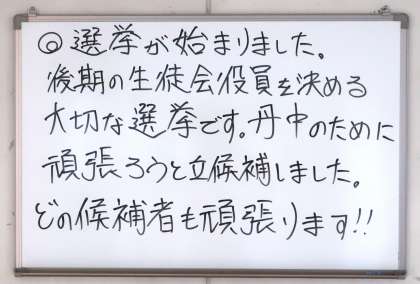 ◎選挙が始まりました。
後期の生徒会役員を決める
大切な選挙です。丹中のために
頑張ろうと立候補しました。
どの候補者も頑張ります!!